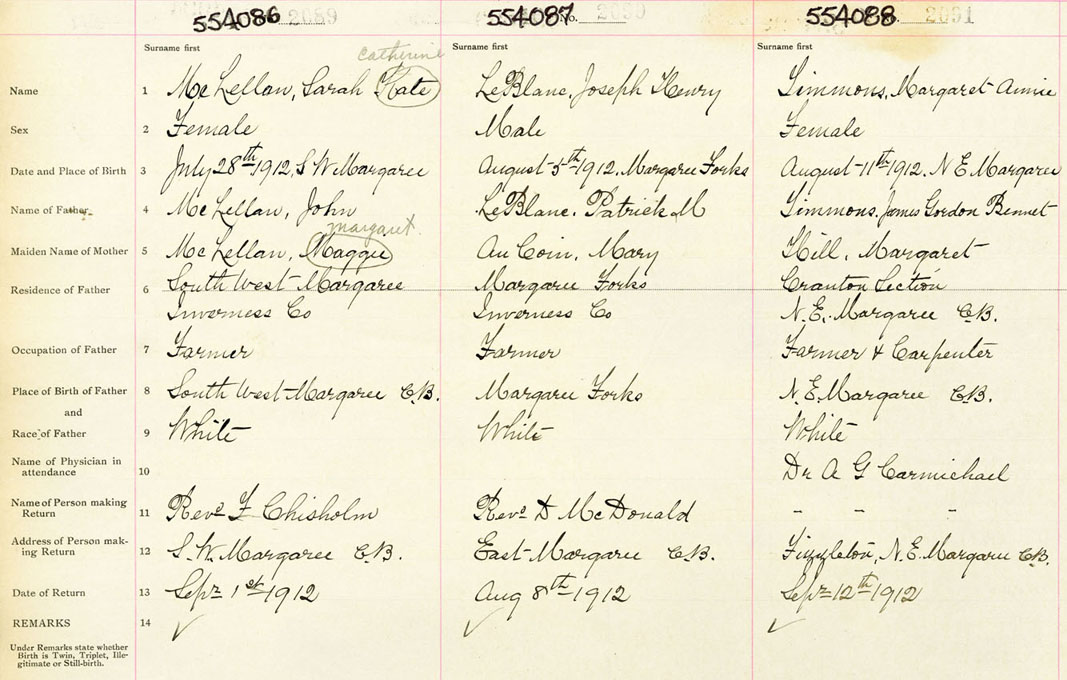 554086 2089 554087 No. 2090 554088 2091
Surname first Surname first Surname first
Catherine
Name 1 Mc Lellan, Sarah Kate LeBlanc, Joseph Henry Simmons, Margaret Annie
Sex 2 Female Male Female
Date and Place of Birth 3 July 28th 1912, S W Margaree August 5th 1912, Margaree Forks August 11th 1912, N E Margaree
Name of Father 4 Mc Lellan, John LeBlanc, Patrick M Simmons, James Gordon Bennet
margaret.
Maiden Name of Mother 5 Mc Lellan, Maggie Au Coin, Mary Hill, Margaret
Residence of Father 6 South West Margaree Margaree Forks Cranton Section
Inverness Co Inverness Co N.E. Margaree C.B.
Occupation of Father 7 Farmer Farmer Farmer & Carpenter
Place of Birth of Father 8 South West Margaree C.B. Margaree Forks N.E. Margaree C.B.
and
Race of Father 9 White White White
Name of Physician in
attendance 10 Dr A G Carmichael
Name of Person making
Return 11 Revd F Chisholm Revd D McDonald - - -
Address of Person mak-
ing Return 12 S.W. Margaree C.B. East Margaree C.B. Fizzleton, N.E. Margaree C.B.
Date of Return 13 Sept 1st 1912 Aug 8th 1912 Sept 12th 1912
REMARKS 14 ✓ ✓ ✓
Under Remarks state whether
Birth is Twin, Triplet, Ille-
gitimate or Still-birth.